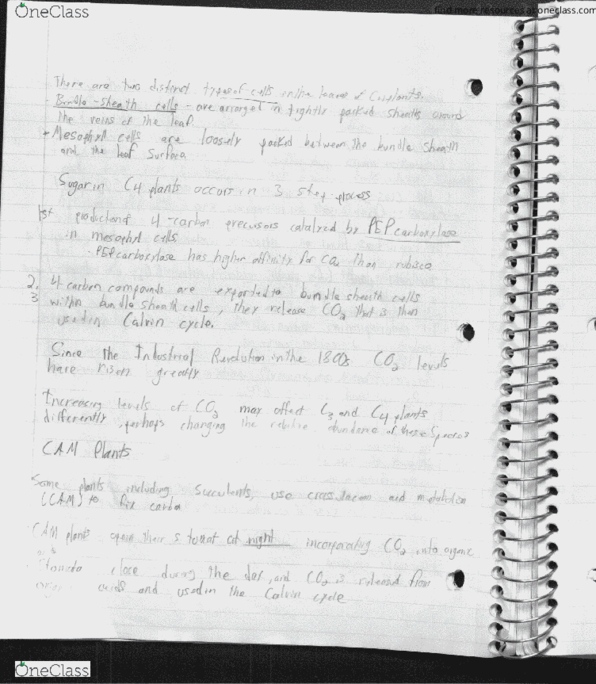 OneClass
find more resources at oneclass.com
There are two distinct types of cells in the leaves of C4 plants:
Bundle-sheath cells - are arranged in tightly packed sheaths around
the veins of the leaf
Mesophyll cells are loosely packed between the bundle sheath
and the leaf surface
Sugar in C4 plants occurs in 3 step process
1st production of 4-carbon precursors catalyzed by PEP carboxylase
in mesophyll cells
PEP carboxylase has higher affinity for CO2 than rubisco
2. 4 carbon compounds are exported to bundle sheath cells
3 within bundle sheath cells, they release CO2 that is then
used in Calvin cycle.
Since the Industrial Revolution in the 1800s CO2 levels
have risen greatly
Increasing levels of CO2 may affect C3 and C4 plants
differently, perhaps changing the relative abundance of these species
CAM Plants
Some plants including succulents, use crassulacean acid metabolism
(CAM) to fix carbon
CAM plants open their stomata at night incorporating CO2 into organic
Stomata close during the day, and CO2 is released from
acids and used in the Calvin cycle
OneClass